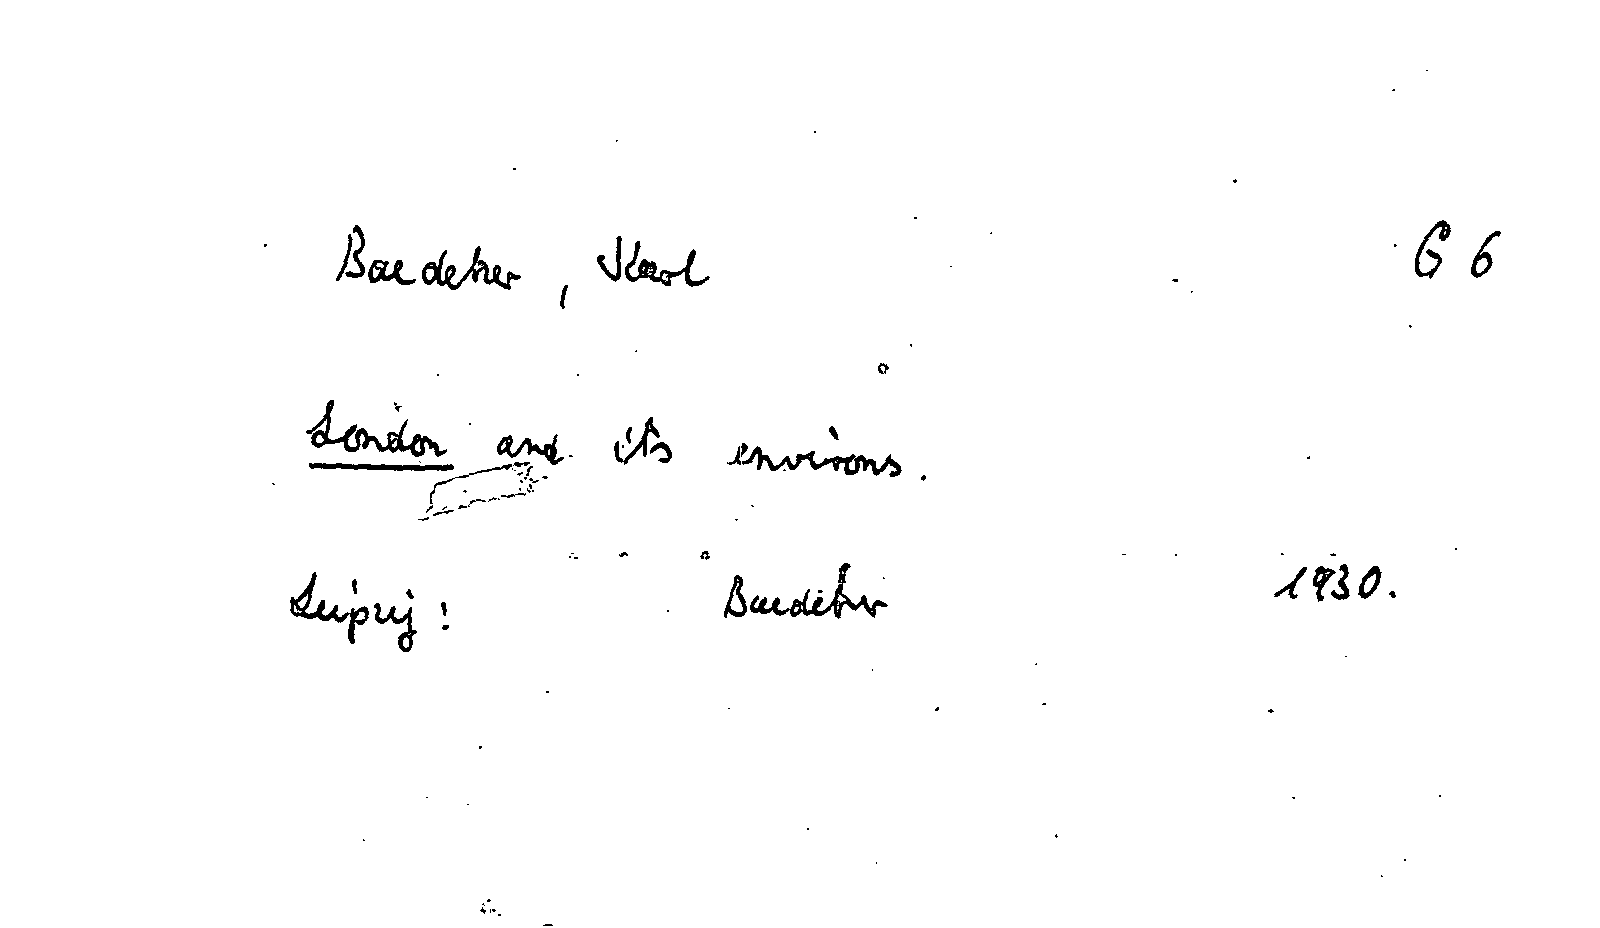 Baedeker, Karl G 6
London and its environs.
Leipzig: Baedeker 1930.